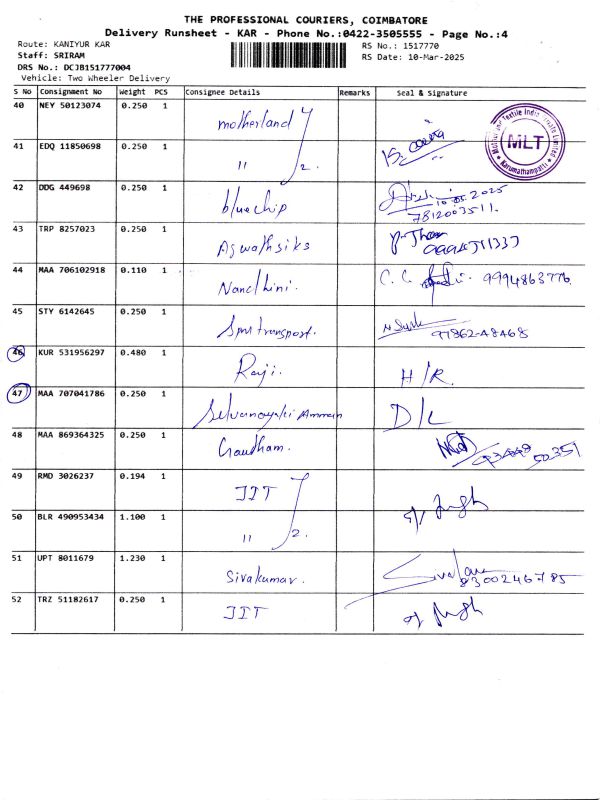 THE PROFESSIONAL COURIERS, COIMBATORE
Delivery Runsheet - KAR - Phone No.:0422-3505555 - Page No.:4
Route: KANIYUR KAR
RS No.: 1517770
Staff: SRIRAM
RS Date: 10-Mar-2025
DRS No.: DCJB151777004
Vehicle: Two Wheeler Delivery
S No Consignment No Weight PCS Consignee Details Remarks Seal & Signature
40 NEY 50123074 0.250 1 motherland
41 EDQ 11850698 0.250 1 " 2.
MLT
Karumathampatti
42 DDG 449698 0.250 1 bluechip 2025
7812003511.
43 TRP 8257023 0.250 1 Aswathsiks
44 MAA 706102918 0.110 1 Nandhini. C. C. 9994863776
45 STY 6142645 0.250 1 Spm transport. 97862-48468
46 KUR 531956297 0.480 1 Raji. H/R.
47 MAA 707041786 0.250 1 Selvanayaki Amman D/L
48 MAA 869364325 0.250 1 Gaudham.
49 RMD 3026237 0.194 1 JIT
50 BLR 490953434 1.100 1 " 2.
51 UPT 8011679 1.230 1 Sivakumar. 8300246785
52 TRZ 51182617 0.250 1 JIT